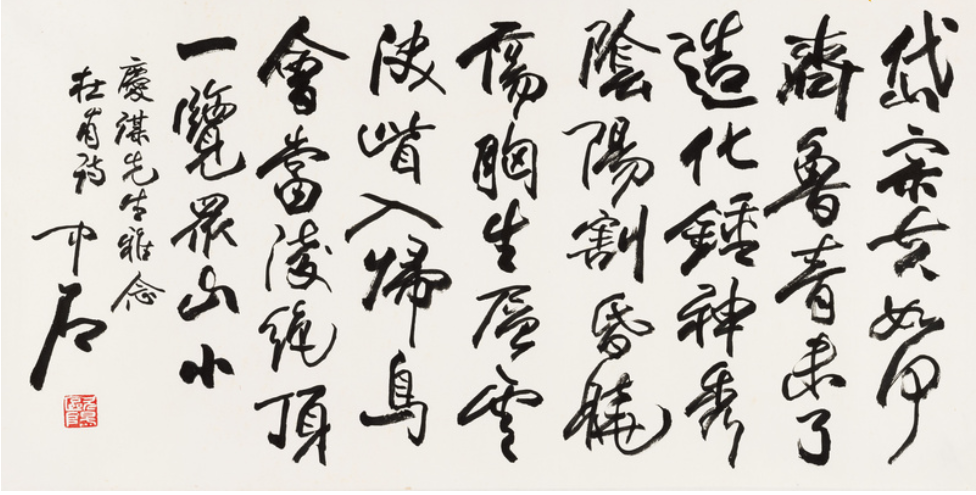 岱宗夫如何
齊魯青未了
造化鍾神秀
陰陽割昏曉
蕩胸生層雲
決眥入歸鳥
會當凌絕頂
一覽眾山小
慶謀先生雅念
杜甫詩 中石